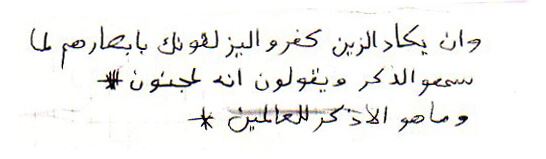 وان يكاد الزين كفرو اليزلقونك بابصارهم لما
سمعو الذكر ويقولون انه لمجنون *
وما هو الا ذكر للعالمين *